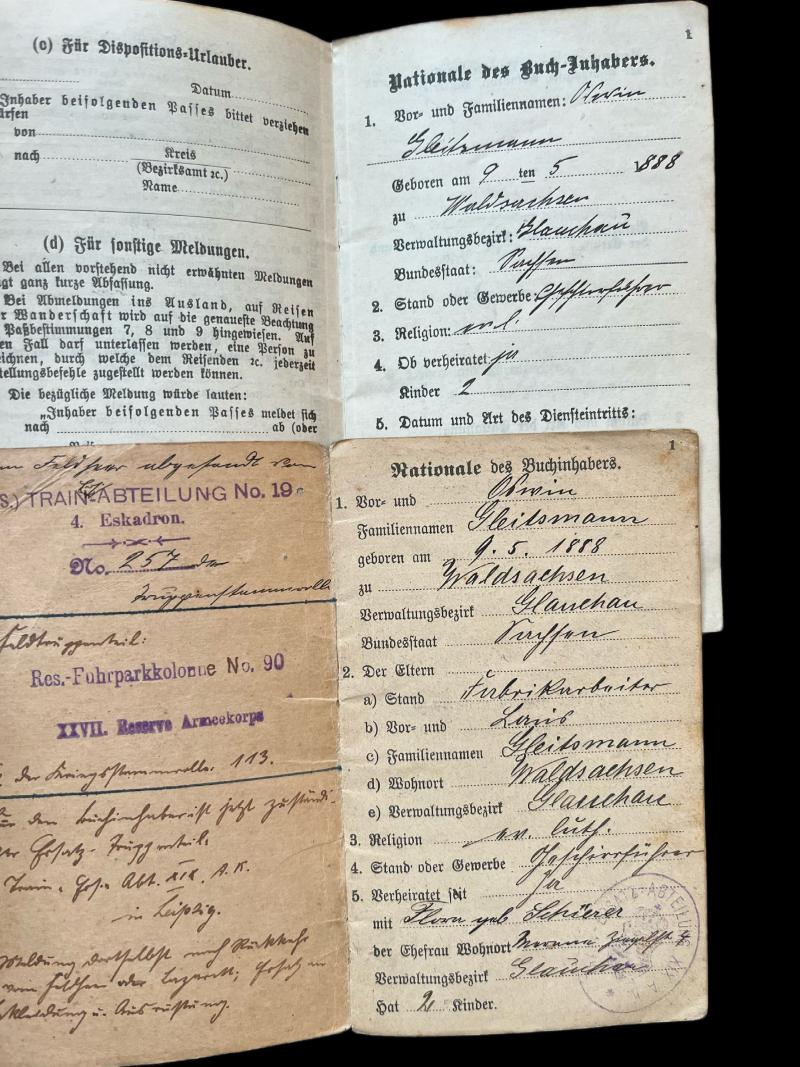 (c) Für Dispositions-Urlauber.
Datum
Inhaber beifolgenden Passes bittet verziehen
ürfen
von
nach Kreis
(Bezirksamt ꝛc.)
Name
(d) Für sonstige Meldungen.
Bei allen vorstehend nicht erwähnten Meldungen
gt ganz kurze Abfassung.
Bei Abmeldungen ins Ausland, auf Reisen
r Wanderschaft wird auf die genaueste Beachtung
Paßbestimmungen 7, 8 und 9 hingewiesen. Auf
en Fall darf unterlassen werden, eine Person zu
eichnen, durch welche dem Reisenden ꝛc. jederzeit
tellungsbefehle zugestellt werden können.
Die bezügliche Meldung würde lauten:
„Inhaber beifolgenden Passes meldet sich
nach ab (oder
1
Nationale des Buch-Inhabers.
1. Vor- und Familiennamen: Oswin
Gleitsmann
Geboren am 9 ten 5 1888
zu Waldsachsen
Verwaltungsbezirk: Glauchau
Bundesstaat: Sachsen
2. Stand oder Gewerbe: Geschirrführer
3. Religion: ev. l.
4. Ob verheiratet ja
Kinder 2
5. Datum und Art des Diensteintritts:
Feldheer abgesandt vom
s.) TRAIN-ABTEILUNG No. 19
4. Eskadron.
No. 257 der
Truppenstammrolle
Feldtruppenteil:
Res.-Fuhrparkkolonne No. 90
XXVII. Reserve Armeekorps
der Kriegsstammrolle: 113.
den Buchinhaber ist jetzt zuständi-
ger Ersatz-Truppenteil:
Train-Ers. Abt. XIX. A.K.
in Leipzig.
Meldung dortselbst nach Rückkehr
vom Feldheer oder Lazarett; Ersatz an
Bekleidung u. Ausrüstung.
1
Nationale des Buchinhabers.
1. Vor- und Oswin
Familiennamen Gleitsmann
geboren am 9. 5. 1888
zu Waldsachsen
Verwaltungsbezirk Glauchau
Bundesstaat Sachsen
2. Der Eltern
a) Stand Fabrikarbeiter
b) Vor- und Louis
c) Familiennamen Gleitsmann
d) Wohnort Waldsachsen
e) Verwaltungsbezirk Glauchau
3. Religion ev. luth.
4. Stand oder Gewerbe Geschirrführer
5. Verheiratet seit Ja
mit Flora geb
der Ehefrau Wohnort Meerane
Verwaltungsbezirk Glauchau
Hat 2 Kinder.